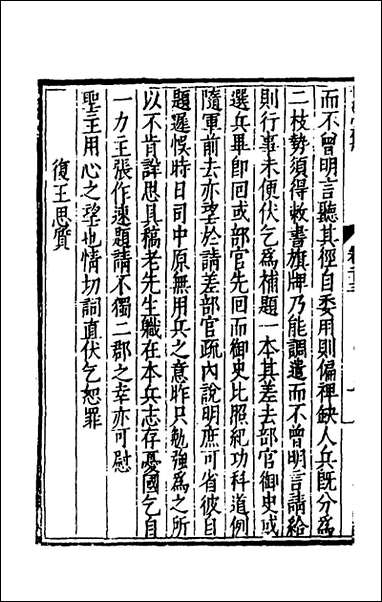 而不曾明言聽其徑自委用則偏裨缺人兵既分為
二枝勢須得敕書旗牌乃能調遣而不曾明言請給
則行事未便伏乞為補題一本其差去部官御史或
選兵畢即回或部官先回而御史比照紀功科道例
隨軍前去亦望於請差部官疏內說明庶可省彼自
題遲悞時日司中原無用兵之意昨只勉強為之所
以不肯詳思具稿老先生職在本兵志存憂國乞自
一力主張作速題請不獨二郡之幸亦可慰
聖主用心之望也情切詞直伏乞恕罪
復王思質